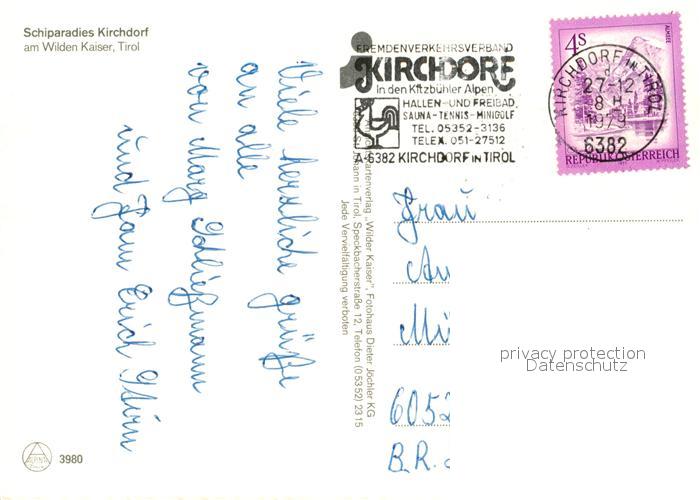 Schiparadies Kirchdorf
am Wilden Kaiser, Tirol
Viele herzliche grüße
an alle
von Marg
und Fam Erich
3980
FREMDENVERKEHRSVERBAND
KIRCHDORF
in den Kitzbühler Alpen
HALLEN-UND FREIBAD,
SAUNA-TENNIS-MINIGOLF
TEL. 05352-3136
TELEX. 051-27512
A-6382 KIRCHDORF IN TIROL
KIRCHDORF IN TIROL
27-12
8 H
1979
6382
4S
ALMSEE
REPUBLIK ÖSTERREICH
Kartenverlag „Wilder Kaiser", Fotohaus Dieter Jöchler KG
in Tirol, Speckbacherstraße 12, Telefon (05352) 2315
Jede Vervielfältigung verboten
Frau
Mü
6052
B.R.
privacy protection
Datenschutz